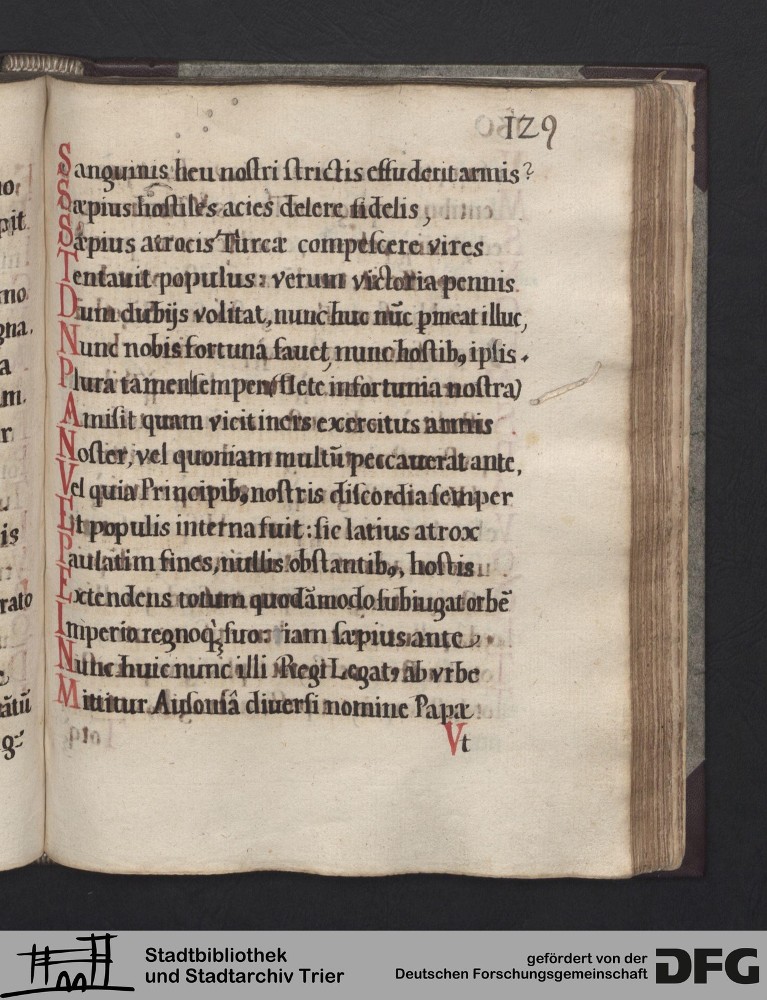 129
Sanguinis heu nostri strictis effuderit armis?
Sæpius hostiles acies delere fidelis,
Sæpius atrocis Turcæ compescere vires
Tentauit populus: verum victoria pennis
Dum dubijs volitat, nunc huc nūc pineat illuc,
Nunc nobis fortuna fauet, nunc hostibꝫ ipsis.
Plura tamen semper
infortunia nostra)
Amisit quam vicit iners exercitus amnis
Noster, vel quoniam multū peccauerat ante,
Vel quia Principibꝫ nostris discordia semper
Et populis interna fuit: sic latius atrox
Paulatim fines, nullis obstantibꝫ, hostis
Extendens totum quodāmodo subiugat orbē
Imperio regnoqꝫ suo: iam sæpius ante
Nunc huic nunc illi Regi Legatꝰ ab vrbe
Mittitur Ausoniâ diuersi nomine Papæ
Vt
Stadtbibliothek
und Stadtarchiv Trier
gefördert von der
Deutschen Forschungsgemeinschaft
DFG